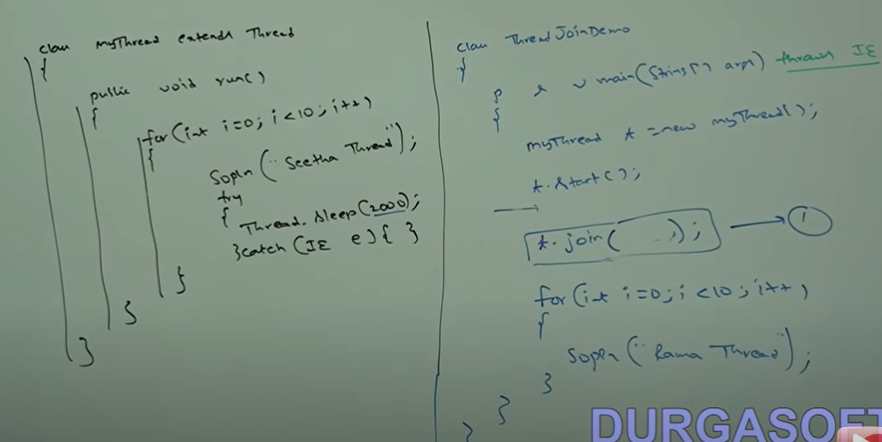 class MyThread extends Thread
{
public void run()
{
for(int i=0; i<10; i++)
{
Sopln("Seetha Thread");
try
{
Thread.sleep(2000);
}catch(IE e){ }
}
}
}
class ThreadJoinDemo
{
p s v main(String[] args) throws IE
{
MyThread t = new MyThread();
t.start();
t.join( );
1
for(int i=0; i<10; i++)
{
Sopln("Rama Thread");
}
}
}
DURGASOFT